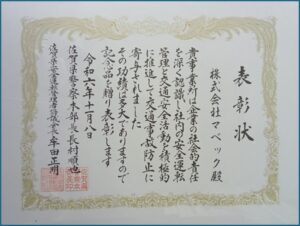 表彰状
株式会社マベック殿
貴事業所は企業の社会的責任
を深く認識し社内の安全運転
管理と交通安全活動を積極的
に推進して交通事故防止に
寄与されました
その功績は多大でありますので
記念品を贈り表彰します
令和六年十一月八日
佐賀県警察本部長 村順也
佐賀県安全運転管理者協議会会長 牟田正明